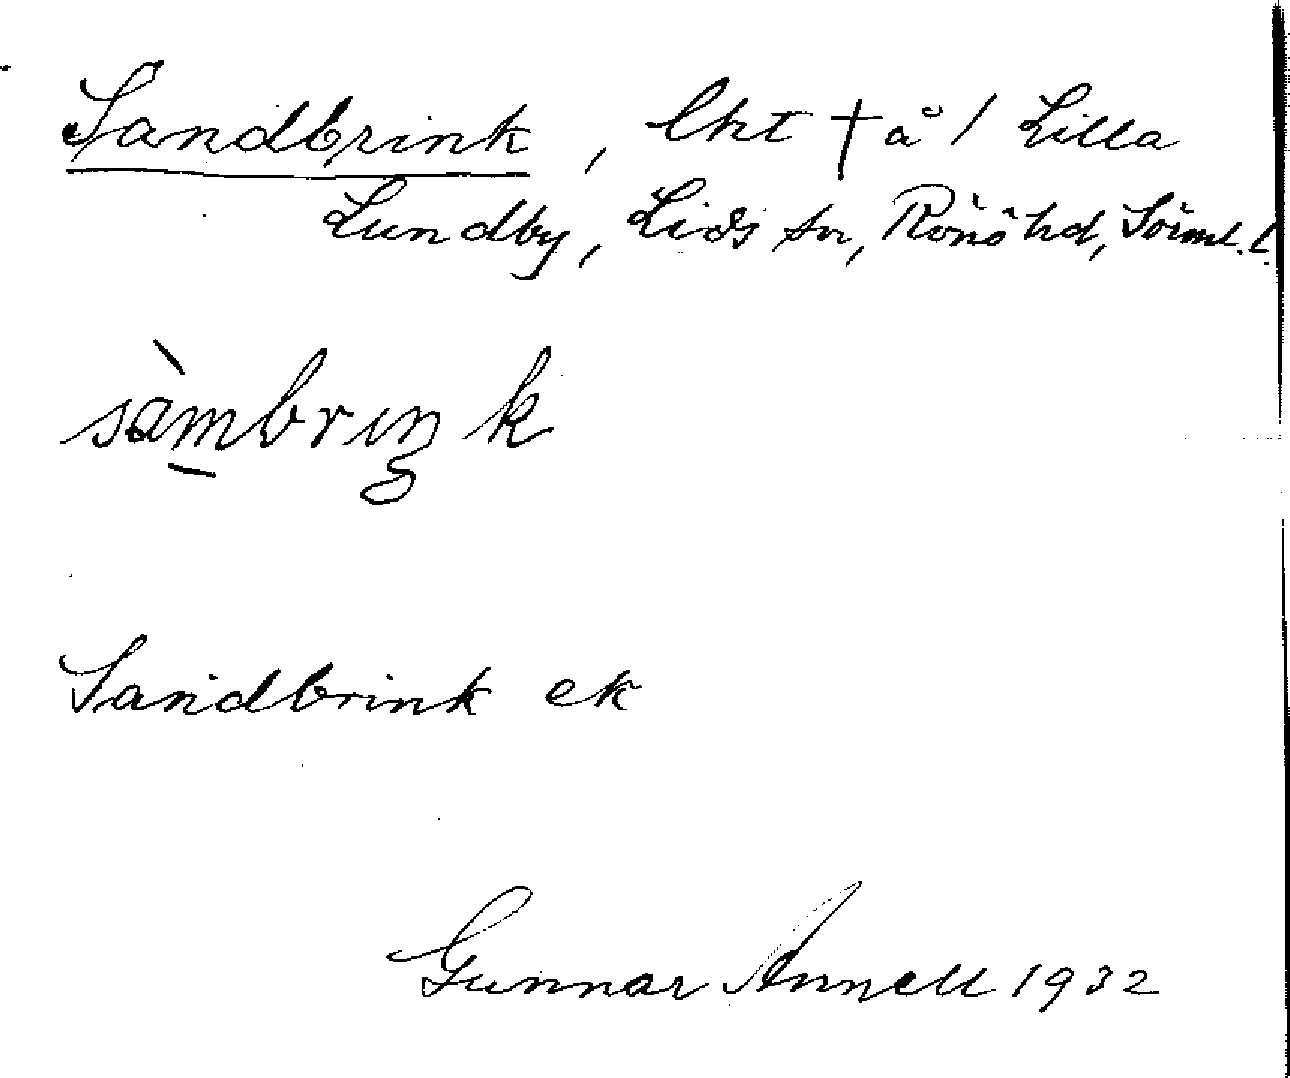 Sandbrink, lht † å / Lilla
Lundby, Lids sn, Rönö hd, Sörml. l.
sàmbrıŋk
Sandbrink ek
Gunnar Annell 1932